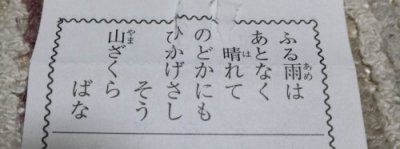 ふる雨は
あめ
あとなく
晴れて
は
のどかにも
ひかげさし
そう
山ざくら
やま
ばな